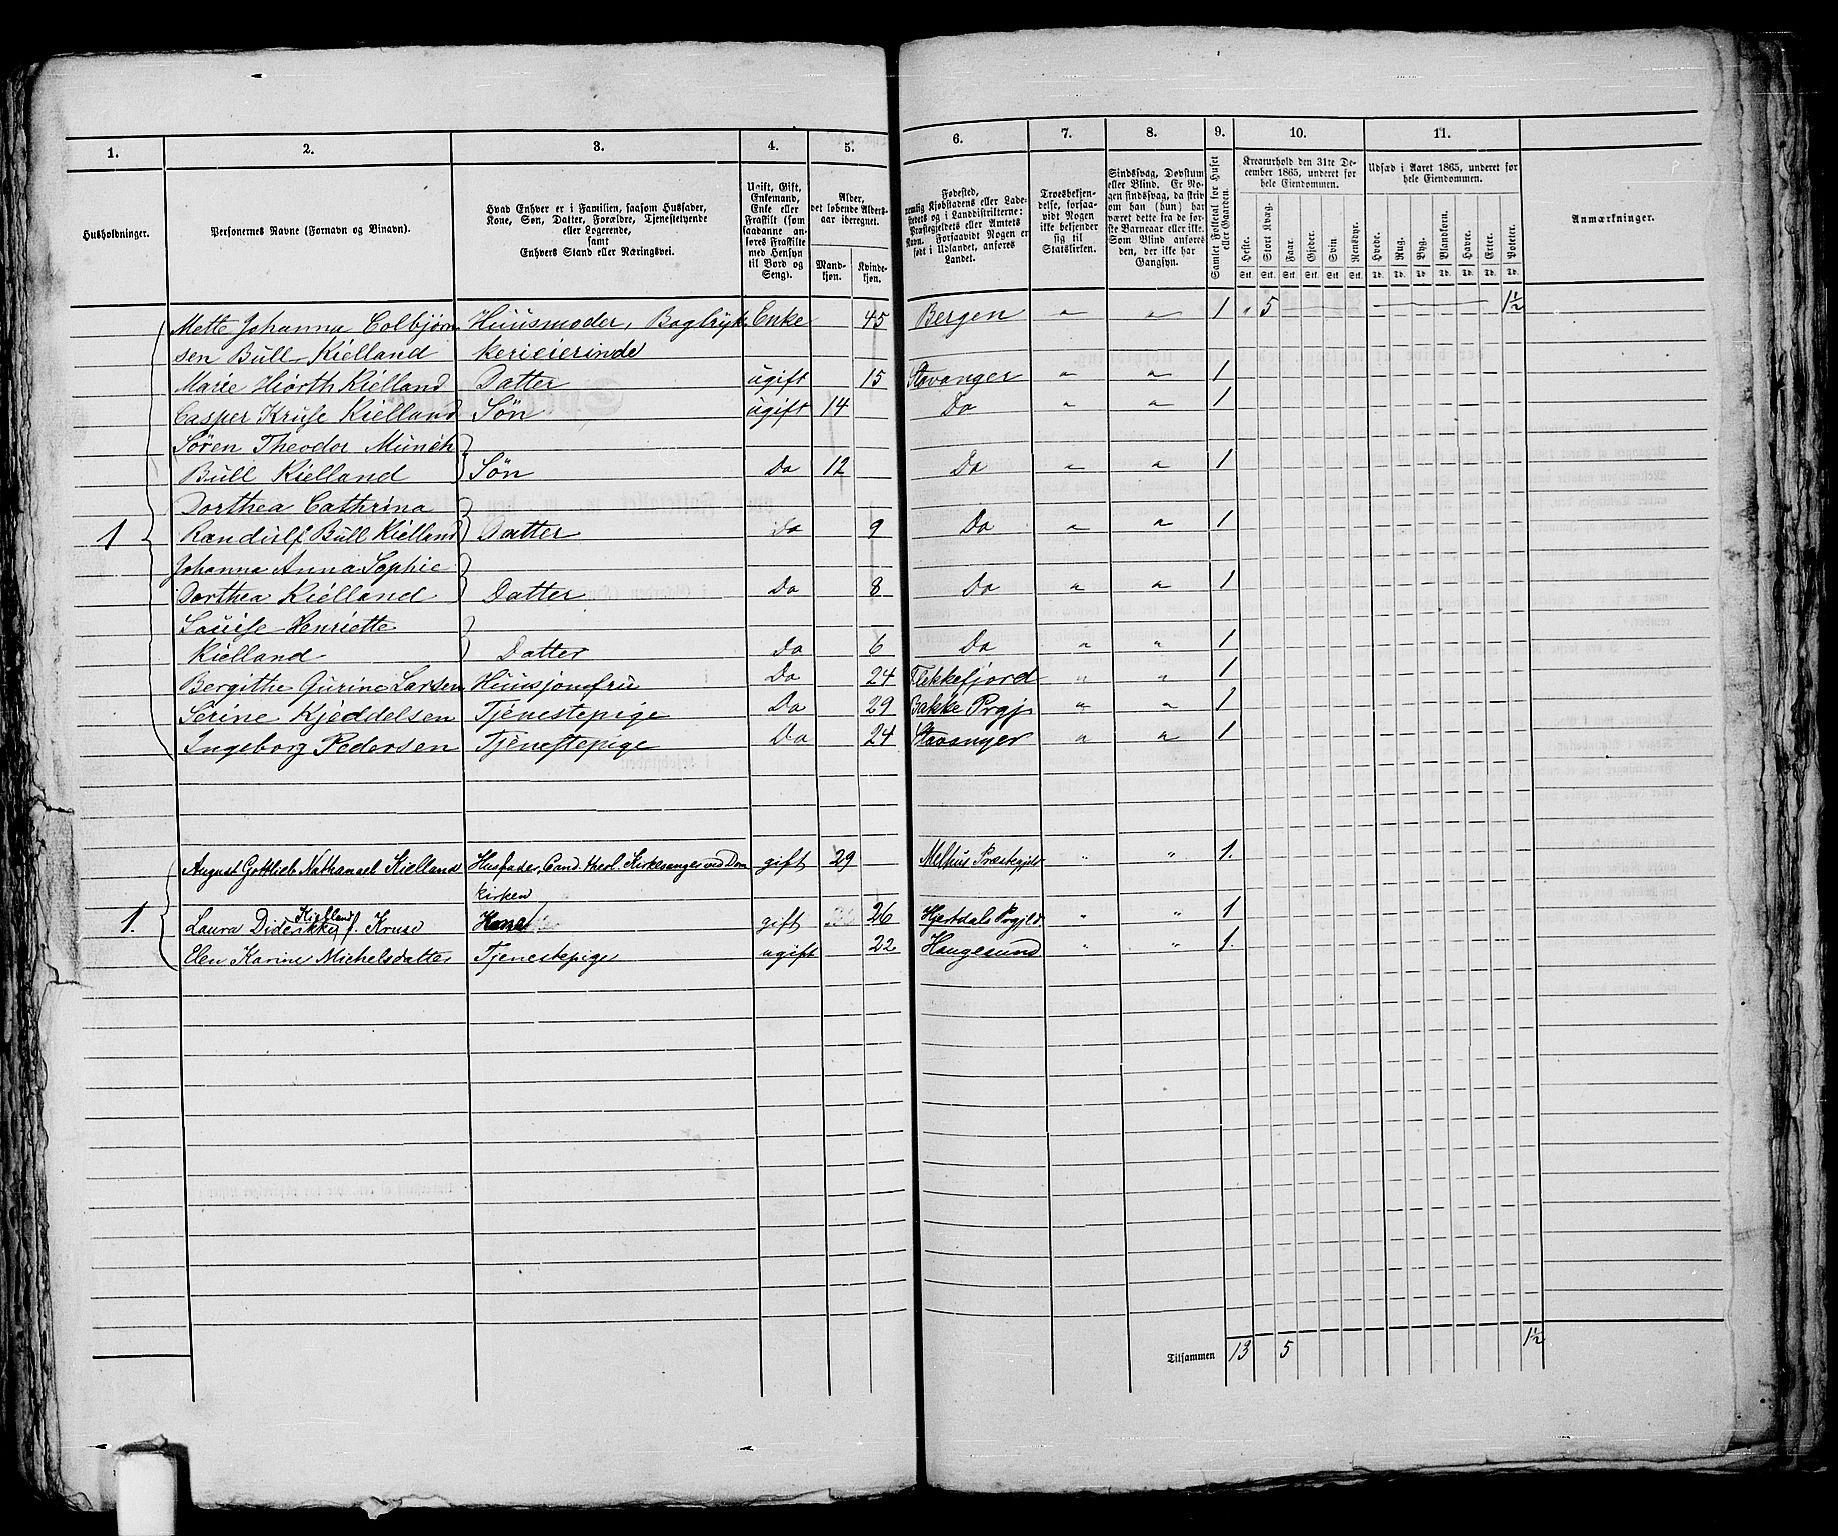 1. 2. 3. 4. 5. 6. 7. 8. 9. 10. 11.
Husholdninger.
Personernes Navne (Fornavn og Binavn).
Hvad Enhver er i Familien, saasom Husfader,
Kone, Søn, Datter, Forældre, Tjenestetyende
eller Logerende,
samt
Enhvers Stand eller Næringsvei.
Ugift, Gift,
Enkemand,
Enke eller
Fraskilt (som
saadanne an-
føres Fraskilte
med Hensyn
til Bord og
Seng).
Alder,
det løbende Alders-
aar iberegnet.
Mand-
kjøn.
Kvinde-
kjøn.
Fødested,
nemlig Kjøbstadens eller Lade-
stedets og i Landdistrikterne:
Præstegjeldets eller Amtets
Navn. Forsaavidt Nogen er
født i Udlandet, anføres
Landet.
Troesbekjen-
delse, forsaa-
vidt Nogen
ikke bekjender
sig til
Statskirken.
Sindssvag, Døvstum
eller Blind. Er No-
gen sindssvag, da skriv
om han (hun) har
været dette fra de før-
ste Barneaar eller ikke.
Som Blind anføres
den, der ikke har
Gangsyn.
Samlet Folketal for Huset
eller Gaarden.
Kreaturhold den 31te De-
cember 1865, underet før
hele Eiendommen.
Heste. Stort Kvæg. Faar. Gjeder. Svin. Rensdyr.
Stk. Stk. Stk. Stk. Stk. Stk.
Udsæd i Aaret 1865, underet før
hele Eiendommen.
Hvede. Rug. Byg. Blandkorn. Havre. Erter. Poteter.
Td. Td. Td. Td. Td. Td. Td.
Anmærkninger.
Mette Johanna Colbjørn Huusmoder, Bogtryk Enke 45 Bergen " " 1 " 5 1½
sen Bull Kielland kerieierinde
Marie Hiorth Kielland Datter ugift 15 Stavanger " " 1
Casper Kruse Kielland Søn ugift 14 Do " " 1
Søren Theodor Münch
Bull Kielland Søn Do 12 Do " " 1
Dorthea Cathrina
1 Randulf Bull Kielland Datter Do 9 Do " " 1
Johanna Anna Sophie
Dorthea Kielland Datter Do 8 Do " " 1
Louise Henriette
Kielland Datter Do 6 Do " " 1
Bergithe Gurine Larsen Huusjomfru Do 24 Flekkefjord " " 1
Serine Kjeddelsen Tjenestepige Do 29 Bakke Prgj " " 1
Ingeborg Pedersen Tjenestepige Do 24 Stavanger " " 1
August Gottlieb Nathanael Kielland Husfader, Cand. theol. Kirkesanger ved Dom gift 29 Melhus Præstegjeld " " 1.
kirken
Kielland
1. Laura Diderikke f. Kruse Kone gift 26 Hjertdals Prgjld " " 1
Elen Karine Michelsdatter Tjenestepige ugift 22 Haugesund " " 1.
Tilsammen 13 5 1½